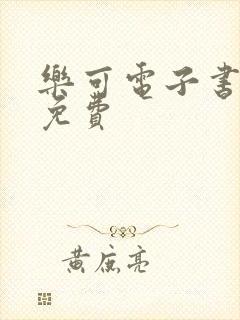 樂可電子書
免費
黃底亮